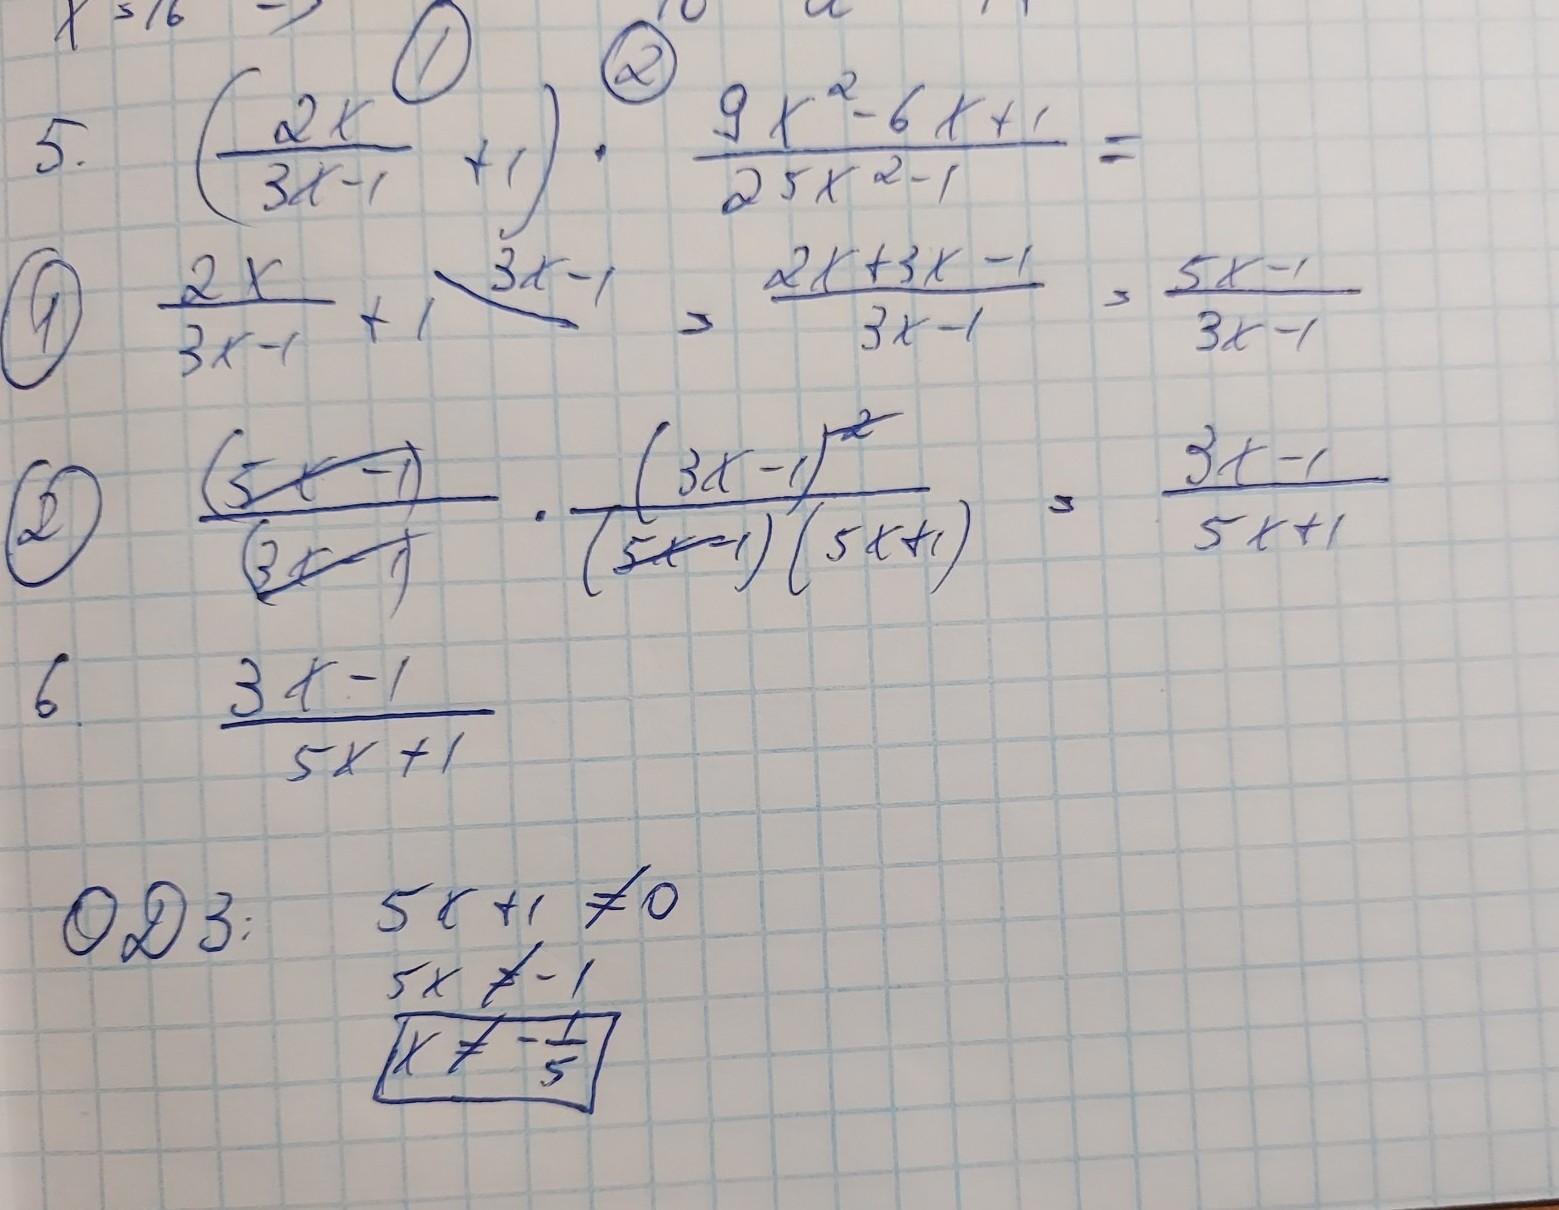 x = 16 →
① ②
5. (2x/(3x-1) + 1) · (9x²-6x+1)/(25x²-1) =
① 2x/(3x-1) + 1 \ 3x-1 = (2x+3x-1)/(3x-1) = (5x-1)/(3x-1)
② (5x-1)/(3x-1) · (3x-1)²/((5x-1)(5x+1)) = (3x-1)/(5x+1)
6. (3x-1)/(5x+1)
ОДЗ: 5x+1 ≠ 0
5x ≠ -1
x ≠ -1/5